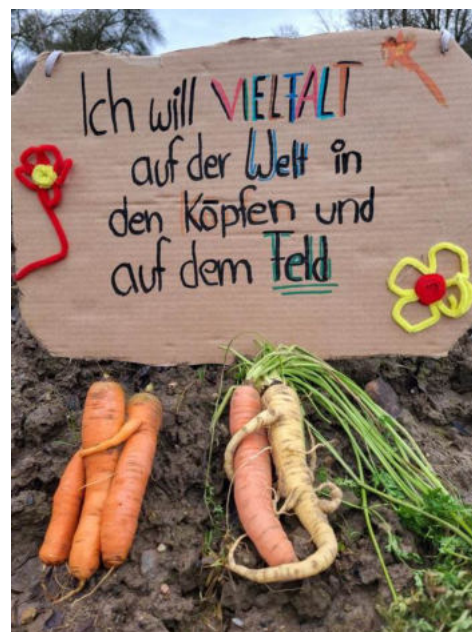 Ich will VIELFALT
auf der Welt in
den Köpfen und
auf dem Feld